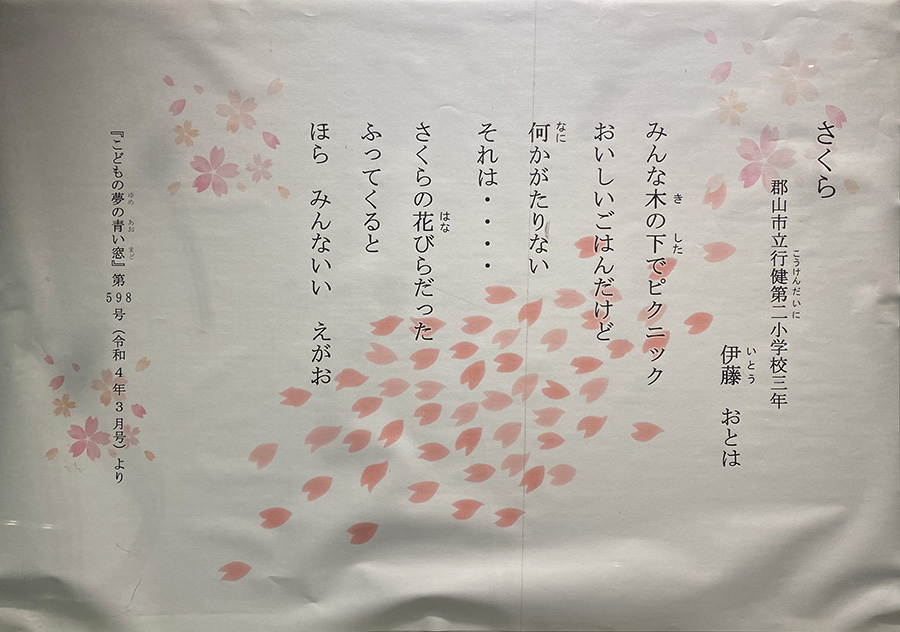 さくら
郡山市立行健第二小学校三年
伊藤　おとは
みんな木の下でピクニック
おいしいごはんだけど
何かがたりない
それは・・・・
さくらの花びらだった
ふってくると
ほら　みんないい　えがお
『こどもの夢の青い窓』第598号（令和4年3月号）より